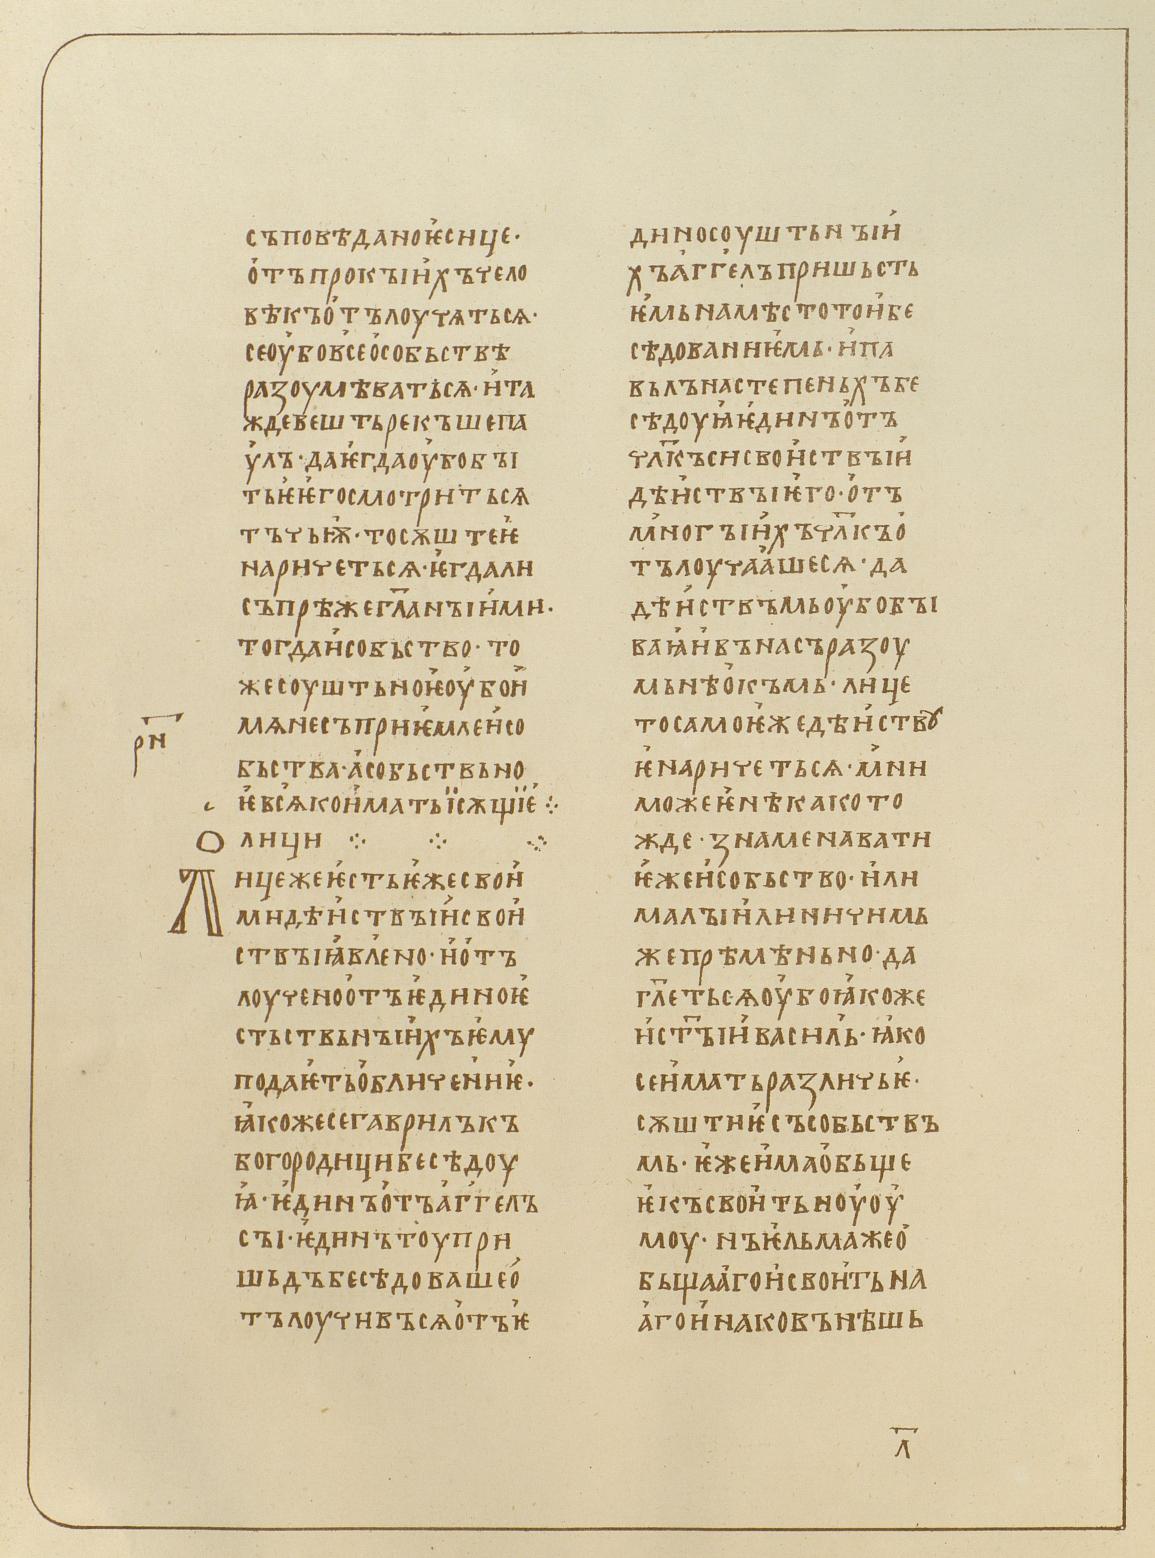 съповѣданоѥсице·
отъпрокъіихъчело
вѣкъотълоучѧтьсѧ·
сеоубовсеособьствѣ
разоумѣватьсѧ·ита
ждевештьрекъшепа
улъ·даѥгдаоубобъі
тьѥѥгосмотритьсѧ
тъчьѭ·тосѫштеѥ
наричетьсѧ·ѥгдали
съпрѣжегл҃анъіими·
тогдаисобьство·то
жесоуштьноѥоубои
мѧнесъприѥмлеисо
рн҃
бьства·асобьствьно
ѥвсѧкоиматьїсѫщїе
О лици
Лицежеѥстьѥжесвои
мидѣиствъіисвои
ствъіꙗвлено·иотъ
лоученоотъѥдиноѥ
стьствьнъіихъѥму
подаѥтьобличениѥ·
ꙗкожесегаврилъкъ
богородицибесѣдоу
ꙗ·ѥдинъотъаггелъ
съі·ѥдинътоупри
шьдъбесѣдовашео
тълоучивъсѧотъѥ
диносоуштьнъіи
хъаггелъпришьсть
ѥмьнамѣстотоибе
сѣдованиѥмь·ипа
вьлънастепеньхъбе
сѣдоуꙗѥдинъотъ
чл҃късисвоиствъіи
дѣиствъіѥго·отъ
многъіихъчл҃къо
тълоучаашесѧ·да
дѣиствъмьоубобъі
ваꙗивънасъразоу
мьнѣокъмь·лице
тосамоѥжедѣиствꙋ
ѥнаричетьсѧ·мни
можеѥнѣкакото
жде·знаменавати
ѥжеисобьство·или
малъіилиничимь
жепрѣмѣньно·да
гл҃етьсѧоубоꙗкоже
ист҃ъіивасиль·ꙗко
сеиматьразличьѥ·
сѫштиѥсъсобьствъ
мь·ѥжеимаобьще
ѥкъсвоитьноуоу
моу·нъѥльмажео
бьщаагоисвоитьна
агоинаковънѣшь
л҃